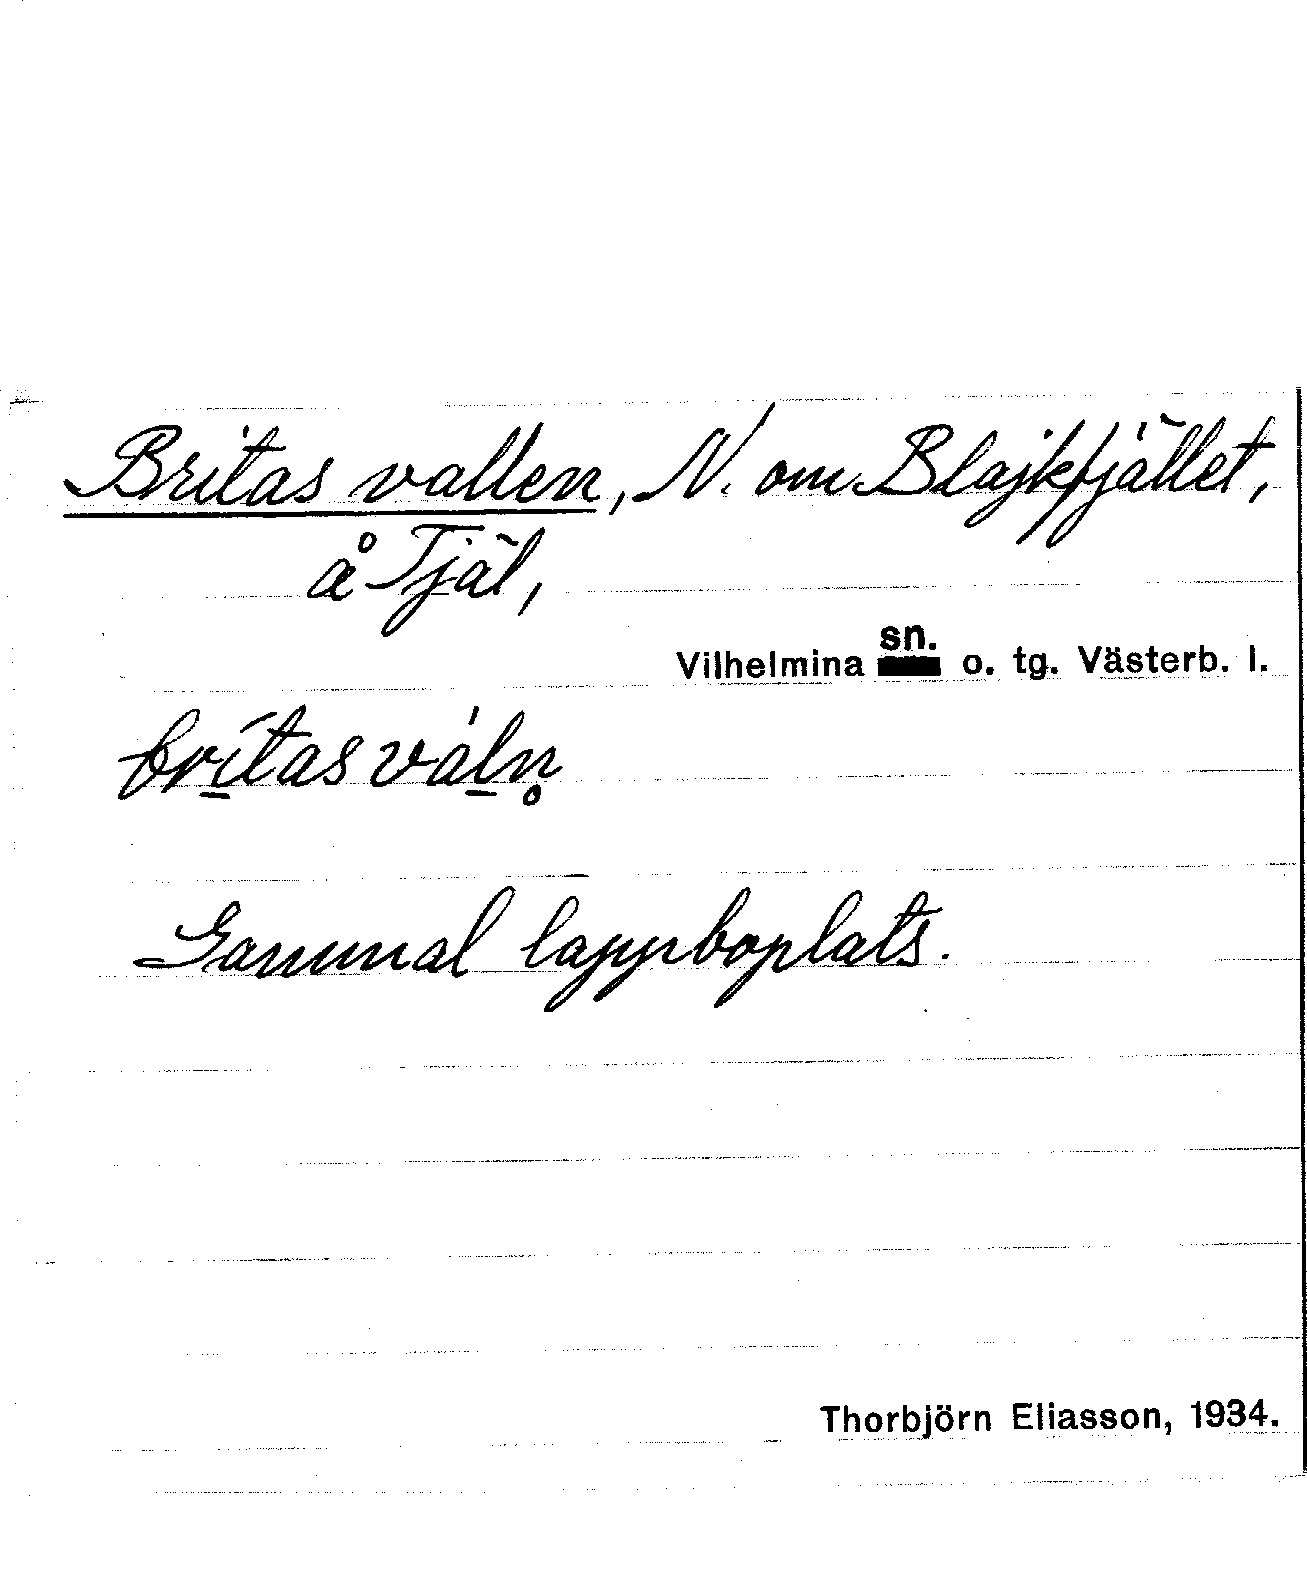 Britas vallen, N. om Blajkfjället,
å Tjäl,
Vilhelmina sn. o. tg. Västerb. l.
brítas váln̥
Gammal lappboplats.
Thorbjörn Eliasson, 1934.